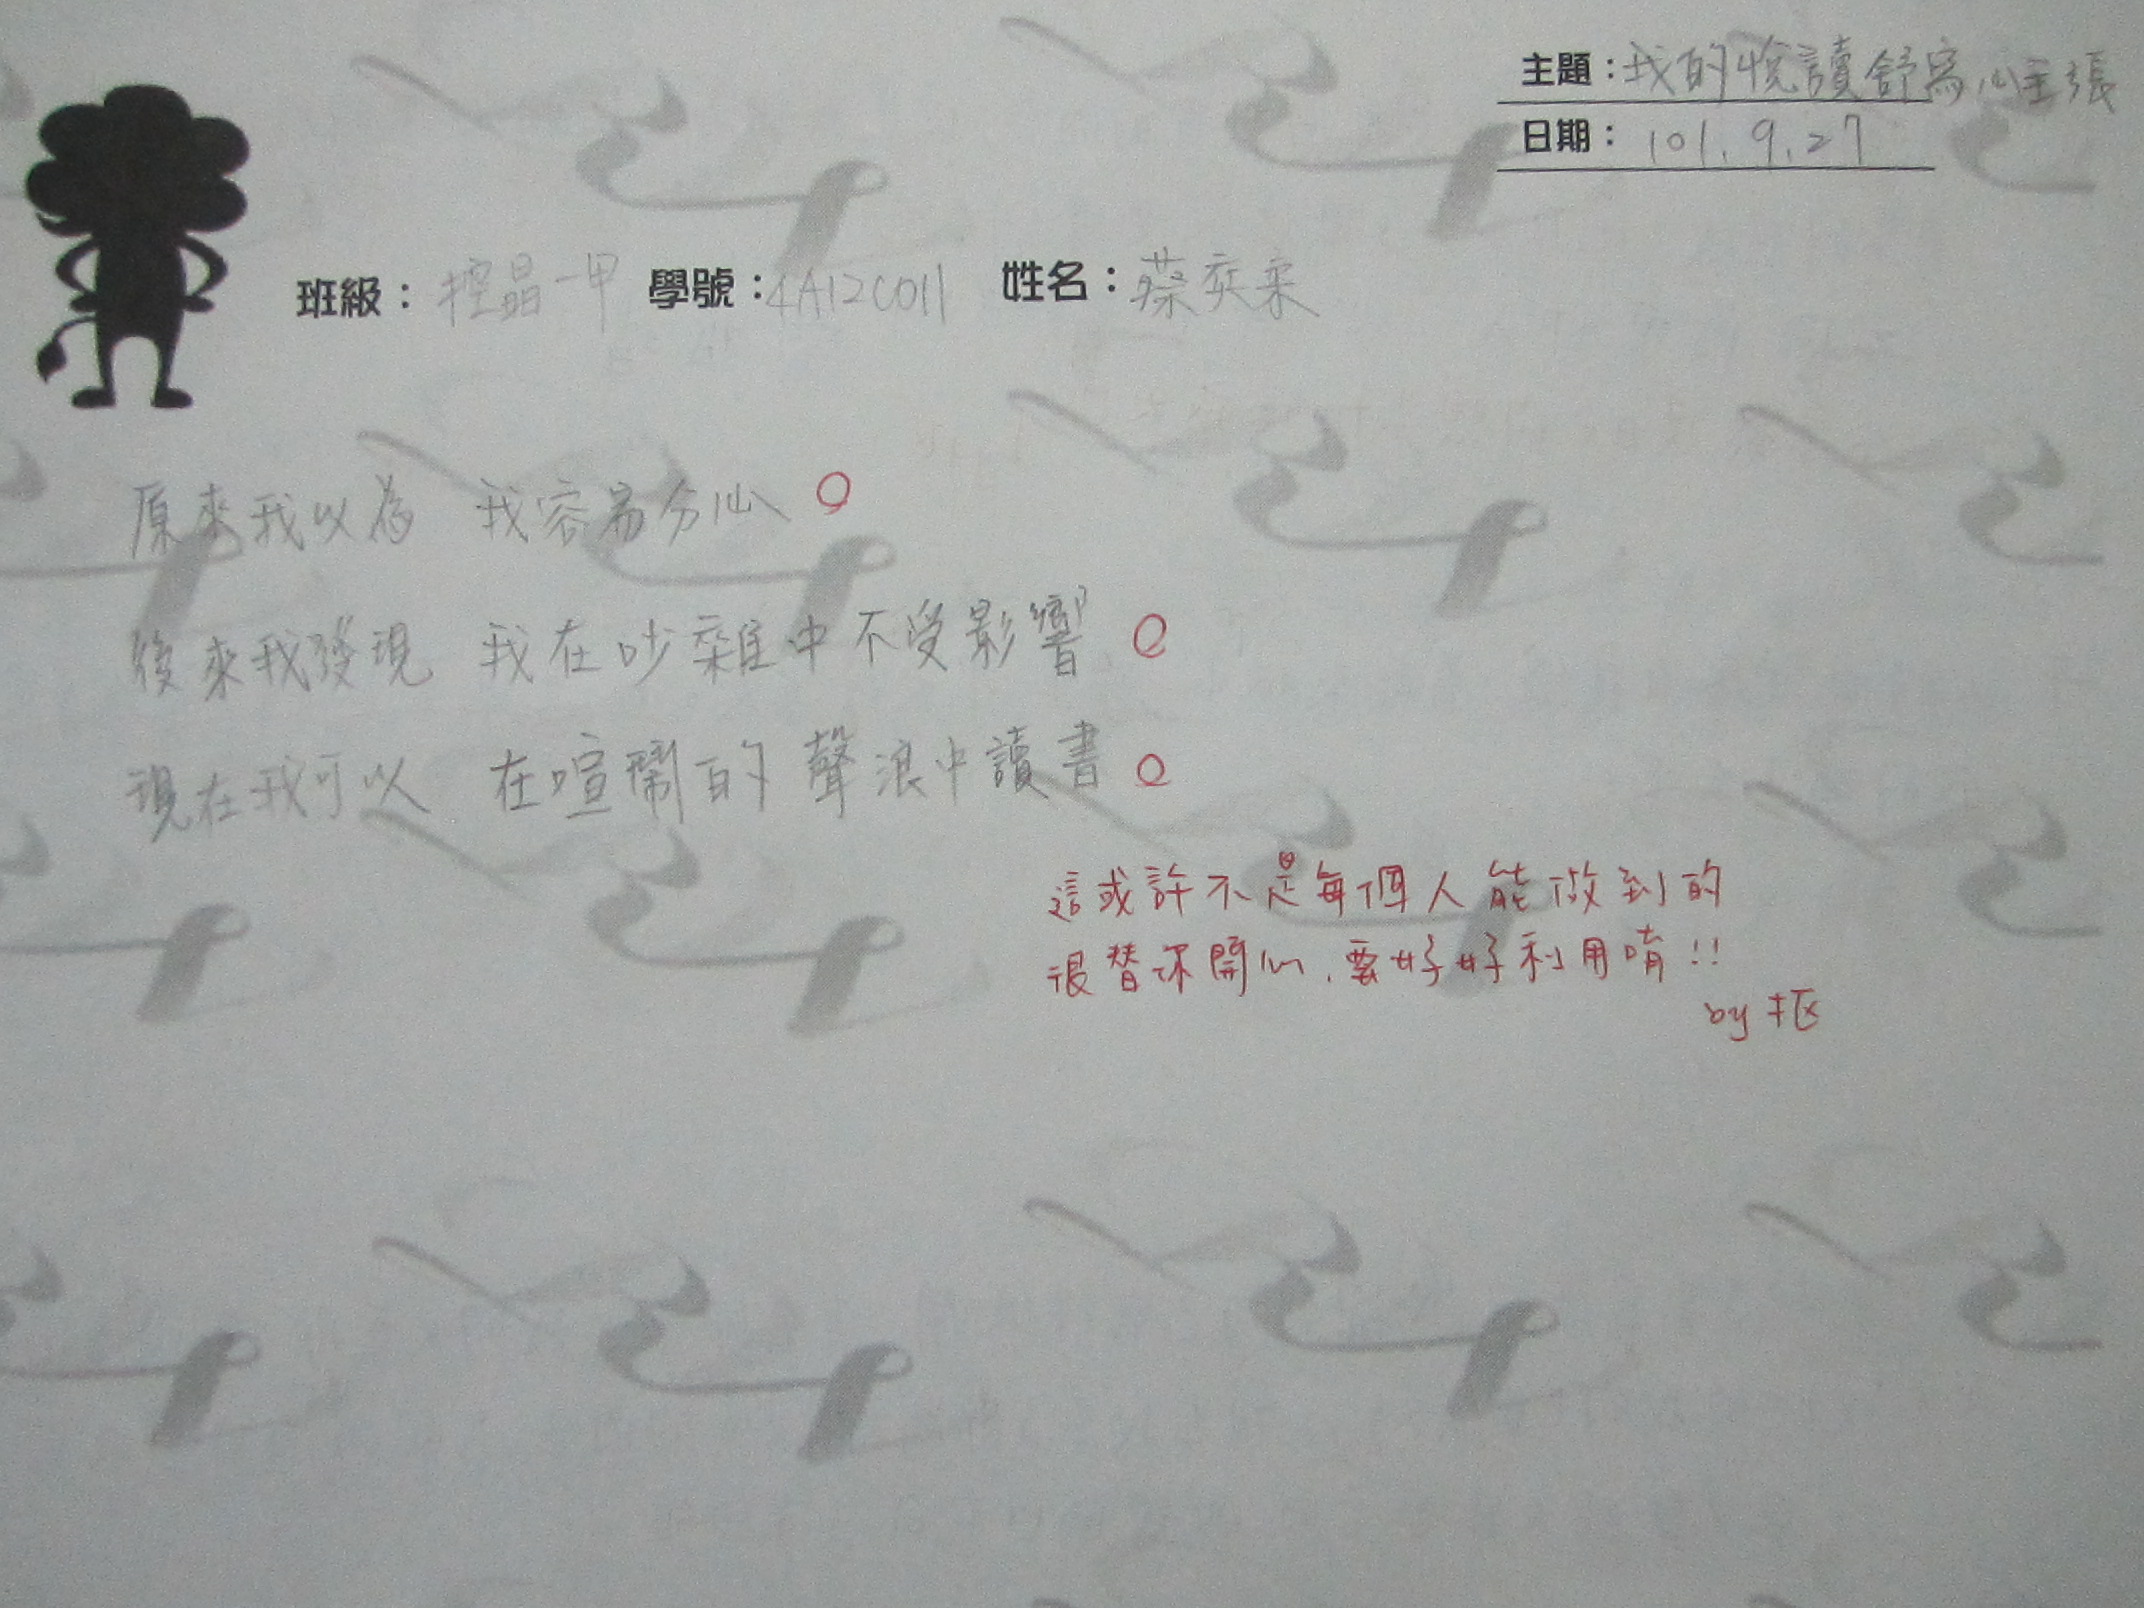 主題：我的悅讀舒寫心主張
日期：101.9.27
班級：控晶一甲 學號：4A12C011 姓名：蔡奕
原來我以為 我容易分心。
後來我發現 我在吵雜中不受影響。
現在我可以 在喧鬧的聲浪中讀書。
這或許不是每個人能做到的
很替你開心,要好好利用唷!!
by